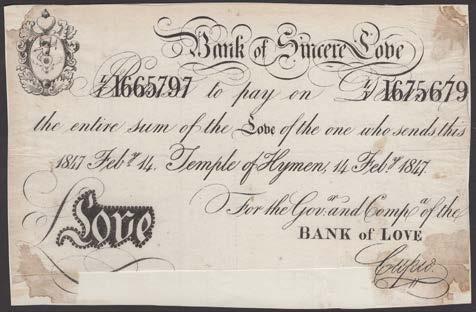 Bank of Sincere Love
1665797 to pay on 1675679
the entire sum of the Love of the one who sends this
1847 Feby. 14. Temple of Hymen, 14 Feby. 1847
For the Govr. and Compa. of the
BANK of LOVE
Love
Cupid.